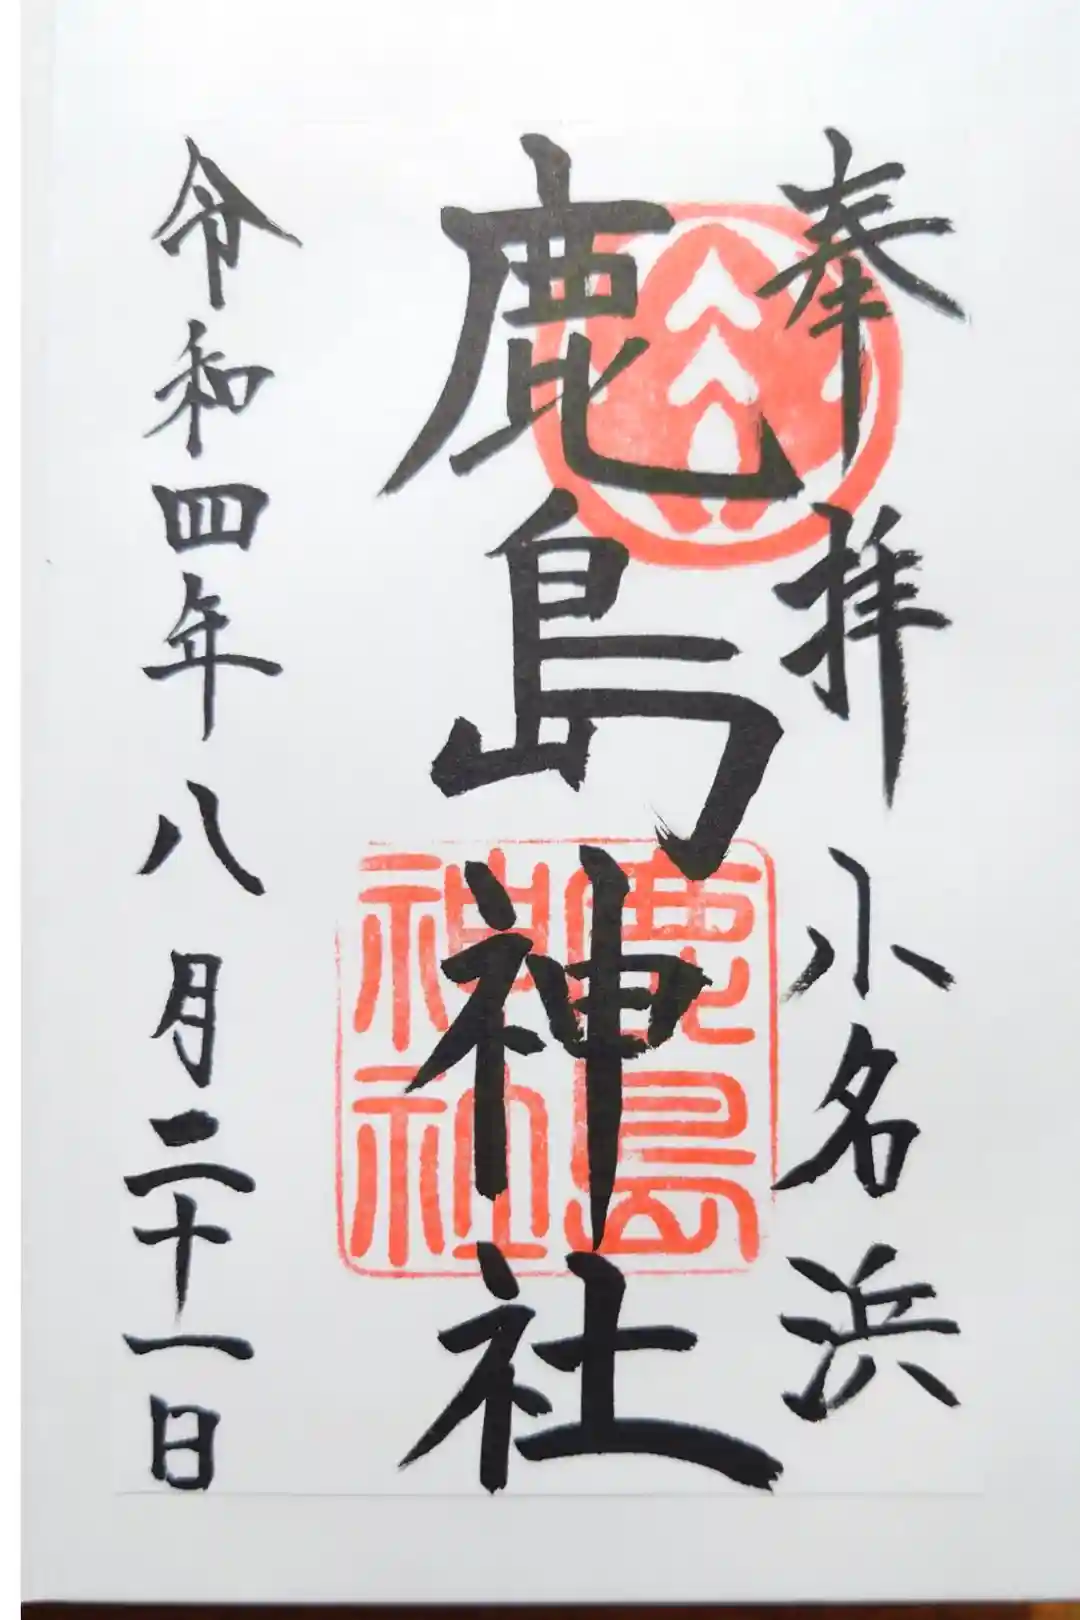 奉拝 小名浜
鹿島神社
鹿島神社
令和四年八月二十一日